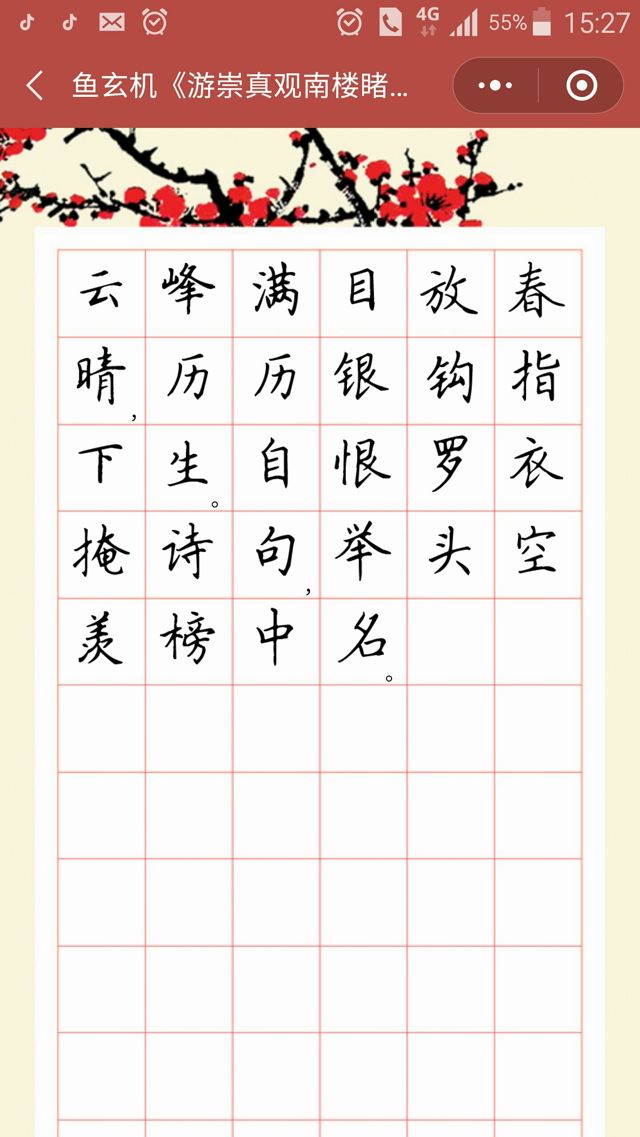 4G 55% 15:27
鱼玄机《游崇真观南楼睹...
云峰满目放春
晴，历历银钩指
下生。自恨罗衣
掩诗句，举头空
羡榜中名。